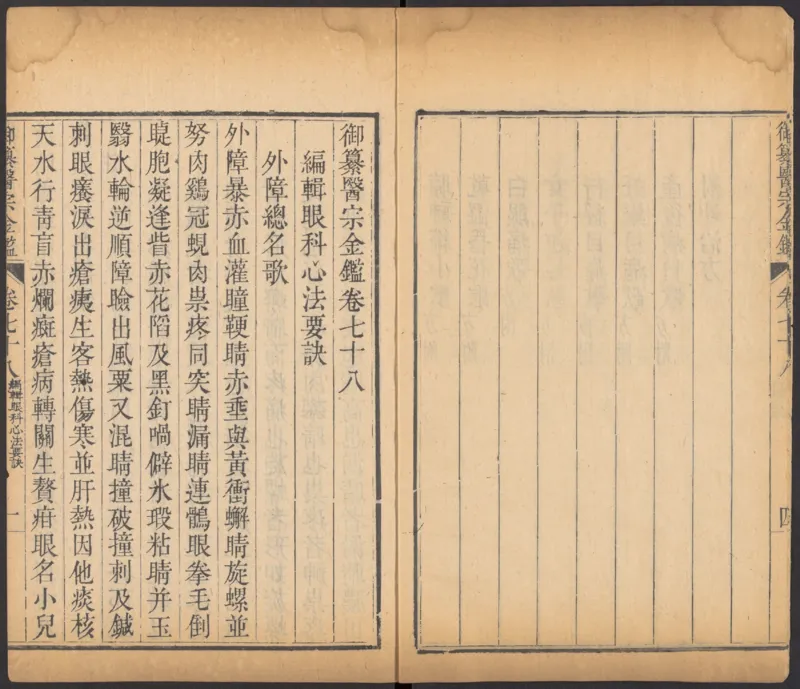 御纂醫宗金鑑 卷七十八 四
御纂醫宗金鑑卷七十八
編輯眼科心法要訣
外障總名歌
外障暴赤血灌瞳鞕睛赤埀與黃衝蠏睛旋螺並
努肉鷄冠蜆肉祟疼同突睛漏睛連鶻眼拳毛倒
睫胞凝逢眥赤花䧟及黑釘喎僻氷瑕粘睛并玉
翳水輪逆順障瞼出風粟又混睛撞破撞刺及鍼
刺眼癢淚出瘡痍生客熱傷寒並肝熱因他痰核
天水行青盲赤爛癍瘡病轉關生贅疳眼名小兒
御纂醫宗金鑑 卷七十八 編輯眼科心法要訣 一